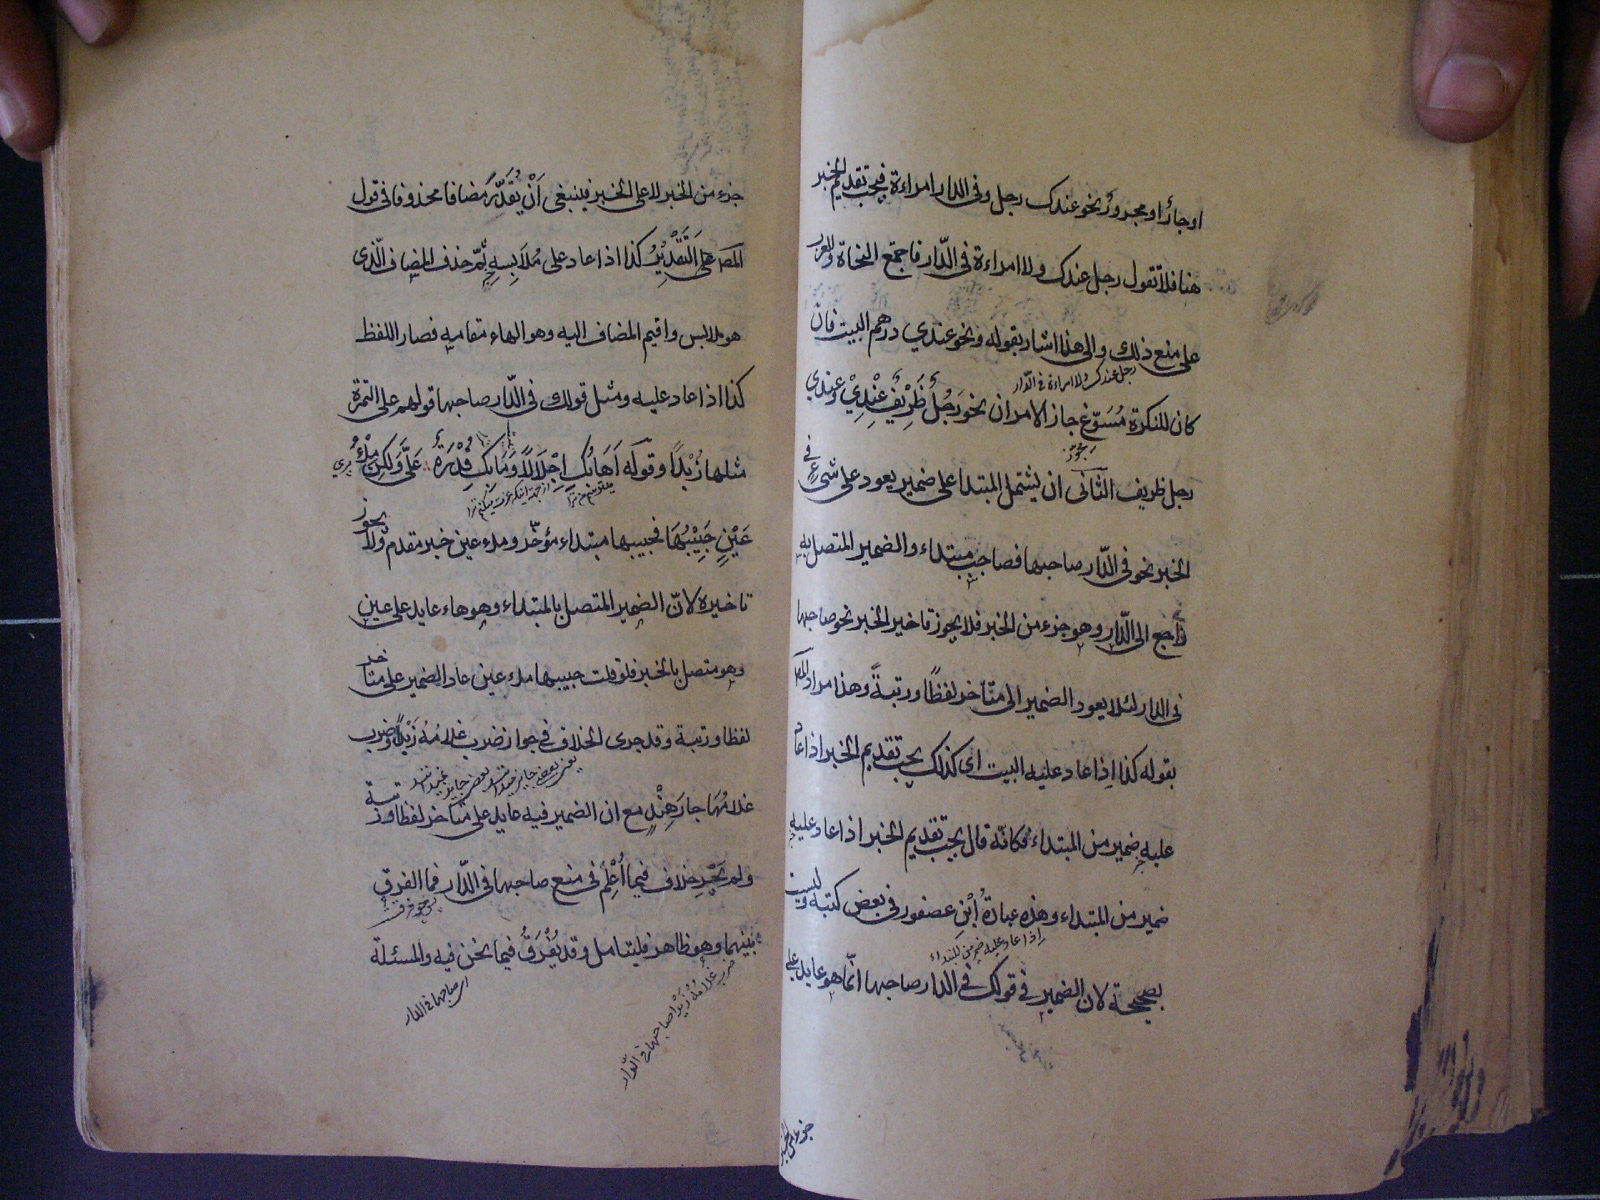 او جارا ومجرور نحو عندك رجل وفى الدار امراءة فيجب تقديم الخبر
هنا فلا تقول رجل عندك ولا امراءة فى الدّار فاجمع النحاة والعرب
على منع ذلك والى هذا اشار بقوله ونحو عندي درهم البيت فان
رجل عندك ولا امراءة فى الدّار
كان للنكرة مُسَوّغ جاز الامران نحو رَجُلٌ ظَرِيْفٌ عِنْدِيْ وعندي
رجل ظريف الثانى ان يشتمل المبتداء على ضمير يعود على شئ فى
الخبر نحو فى الدّار صاحبها فصاحب مبتداء والضمير المتصل به
راجع الى الدّار وهو جزء من الخبر فلا يجوز تاخير الخبر نحو صاحبها
فى الدار لئلا يعود الضمير الى متأخر لفظًا ورتبةً وهذا مراد المص
بقوله كذا اِذا عاد عليه البيت اى كذلك يجب تقديم الخبر اذا عاد
عليه ضمير من المبتداء فكانّه قال يجب تقديم الخبر اذا عاد عليه
ضمير من المبتداء وهذه عبارةُ اُبْن عصفور فى بعض كتبه وليست
اذا عاد عليه ضمير من المبتداء
بصحيحة لان الضمير فى قولك فى الدار صاحبها انّما هو عايد على
جزء من الخبر
جزء من الخبر لا على الخبر فينبغى اَنْ يُقَدَّرَ مضافا محذوفا فى قول
المص على اَلتَّقْدِيْرُ كذا اذا عاد على مُلَابِسِهِ ثُمّ حذف المضاف الّذى
هو ملابس واقيم المضاف اليه وهو الهاء مقامه فصار اللفظ
كذا اذا عاد عليه ومثل قولك فى الدّار صاحبها قولهم على التمرة
مثلها زُبْدًا وقوله اَهَابُكِ اِجْلَالًا وَمَابِكِ قُدْرَةٌ عَلَىَّ وَلَكِنْ مِلْءُ
عَيْنٍ حَبِيْبُهَا فحبيبها مبتداء مؤخّر وملء عين خبر مقدم ولا يجوز
تاخيره لانّ الضمير المتصل بالمبتداء وهو هاء عايد على عين
وهو متصل بالخبر فلو قلت حبيبها ملء عين عاد الضمير على متأخر
لفظا ورتبة وقد جرى الخلاف فى جواز ضرب غلامُهُ زَيْدًا وضرب
غلامُهَا جارَ هِنْدٍ مع ان الضمير فيه عايد على متأخر لفظا ورتبة
ولم يَجْرِ خلاف فيما اُعْلِمَ فى منع صاحبها فى الدّار فما الفرق
بينهما وهو ظاهر فليتامل وقد يُفْرَقُ فيما نحن فيه والمسئلة
اى صاحبها فى الدار
ضرب غلامُهُ زَيْدًا صاحبها فى الدّار